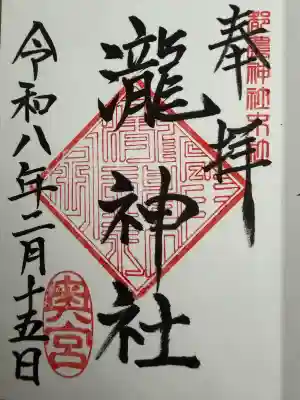 都農神社末社
奉拝
瀧神社
令和八年二月十五日
奥宮